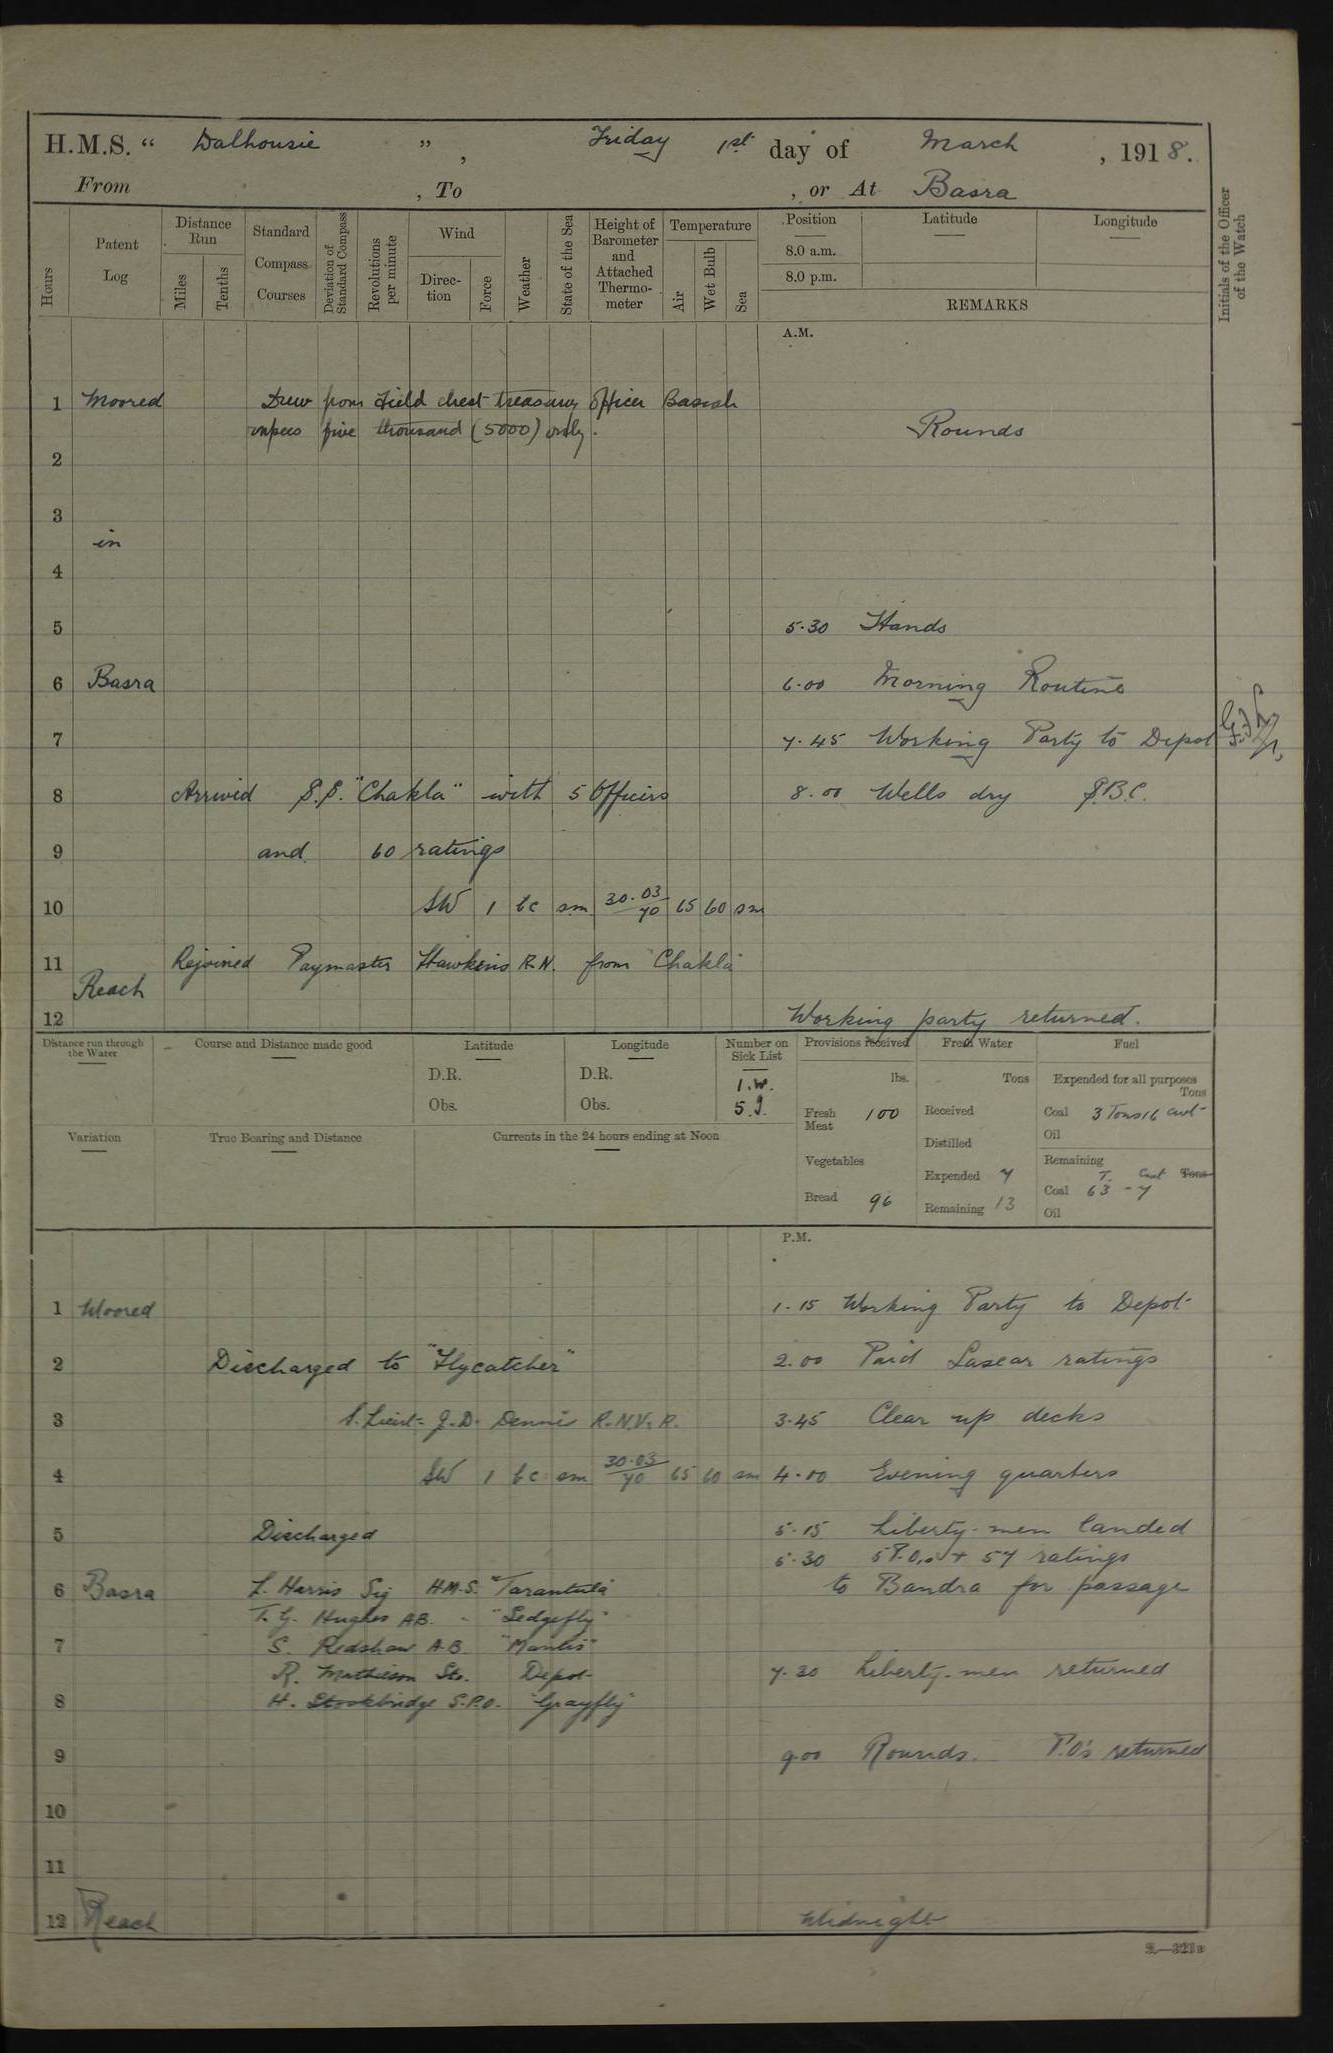 H.M.S. “ Dalhousie ” , Friday 1st day of March , 1918.
From , To , or At Basra
Hours
Patent Log
Distance Run
Miles
Tenths
Standard Compass Courses
Deviation of Standard Compass
Revolutions per minute
Wind
Direction
Force
Weather
State of the Sea
Height of Barometer and Attached Thermometer
Temperature
Air
Wet Bulb
Sea
Position Latitude Longitude
8.0 a.m.
8.0 p.m.
REMARKS
Initials of the Officer of the Watch
A.M.
1 Moored Drew from Field chest treasury Officer Basrah
rupees five thousand (5000) only. Rounds
2
3
in
4
5 5.30 Hands
6 Basra 6.00 Morning Routine
7 7.45 Working Party to Depot
8 Arrived S.S. "Chakla" with 5 Officers 8.00 Wells dry S.B.C.
9 and 60 ratings
10 SW 1 bc sm 30.03/70 65 60 sm
11 Rejoined Paymaster Hawkins R.N. from "Chakla"
Reach
12 Working party returned.
Distance run through the Water
Course and Distance made good
Latitude
D.R.
Obs.
Longitude
D.R.
Obs.
Number on Sick List
1.W.
5.I.
Provisions received
lbs.
Fresh Meat 100
Vegetables
Bread 96
Fresh Water
Tons
Received
Distilled
Expended 7
Remaining 13
Fuel
Expended for all purposes
Tons
Coal 3 Tons 16 cwt
Oil
Remaining
T. Cwt Tons
Coal 63 - 7
Oil
Variation
True Bearing and Distance
Currents in the 24 hours ending at Noon
P.M.
1 Moored 1.15 Working Party to Depot
2 Discharged to "Flycatcher" 2.00 Paid Lascar ratings
3 S. Lieut J.D. Dennis R.N.V.R. 3.45 Clear up decks
4 SW 1 bc sm 30.03/70 65 60 sm 4.00 Evening quarters
5 Discharged 5.15 Liberty-men landed
5.30 5 P.O.s + 57 ratings
6 Basra L. Harris Sig H.M.S. "Tarantula" to Bandra for passage
T. G. Hughes AB. - "Sedgefly"
7 S. Redshaw A.B. "Mantis"
R. Mathieson Sto. Depot 7.30 Liberty-men returned
8 H. Stockbridge S.P.O. "Grayfly"
9 9.00 Rounds. P.O's returned
10
11
12 Reach Midnight